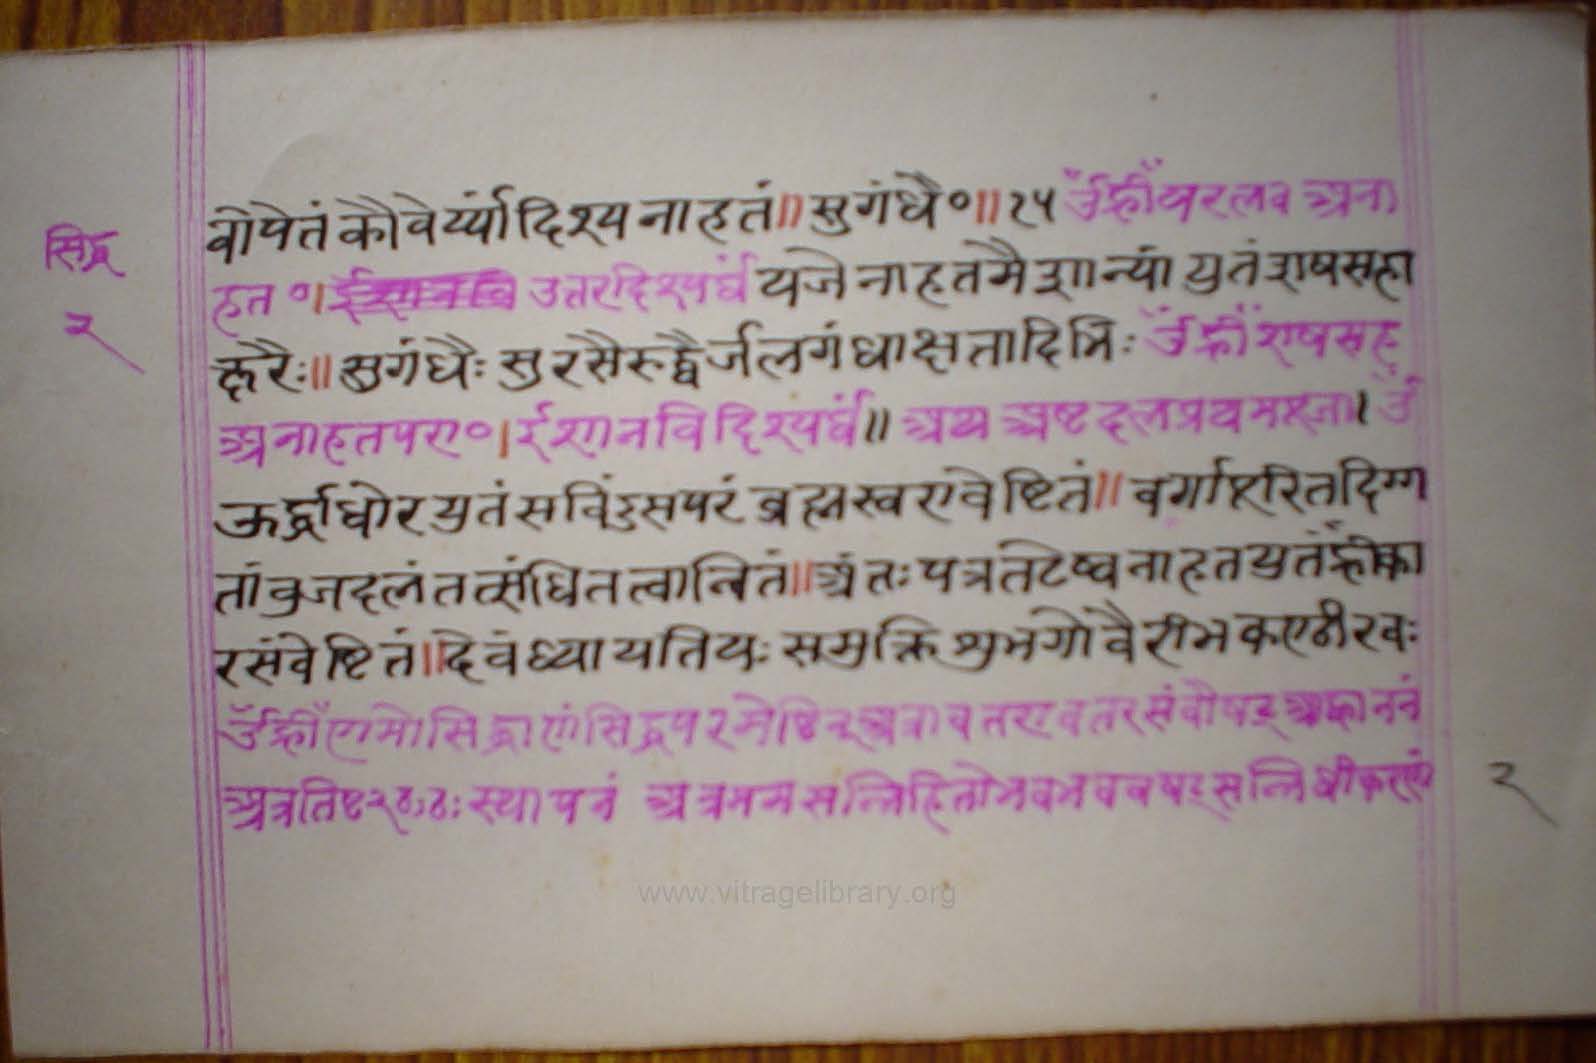 वोपेतं कौवेर्य्यां दिश्यनाहतं॥ सुगंधै०॥२५ ॐ ह्रीं यरलव अना
सिद्ध
हत ०। उत्तरदिश्यर्घं यजेनाहतमैशान्यां युतं शषसहा
२
क्षरैः॥ सुगंधैः सुरसैरुद्घैर्जलगंधाक्षतादिभिः ॐ ह्रीं शषसह
अनाहतपरा०। ईशानविदिश्यर्घं॥ अथ अष्टदलप्रथमपूजा। ॐ
ऊर्द्ध्वाधोरयुतं सविंदुसपरं ब्रह्मस्वरावेष्टितं॥ वर्गापूरितदिग्ग
तांवुजदलं तत्संधितत्वान्वितं॥ अंतः पत्रतटेष्वनाहतयुतं ह्रींका
रसंवेष्टितं॥ देवं ध्यायति यः समुक्तिशुभगो वैरीभकण्ठीरवः
ॐ ह्रीं णमो सिद्धाणं सिद्धपरमेष्ठिन् अत्रावतरावतर संवौषड् आह्वाननं
अत्र तिष्ट २ ठःठः स्थापनं अत्र मम सन्निहितो भव भव वषट् सन्निधीकरणं
२
www.vitragelibrary.org